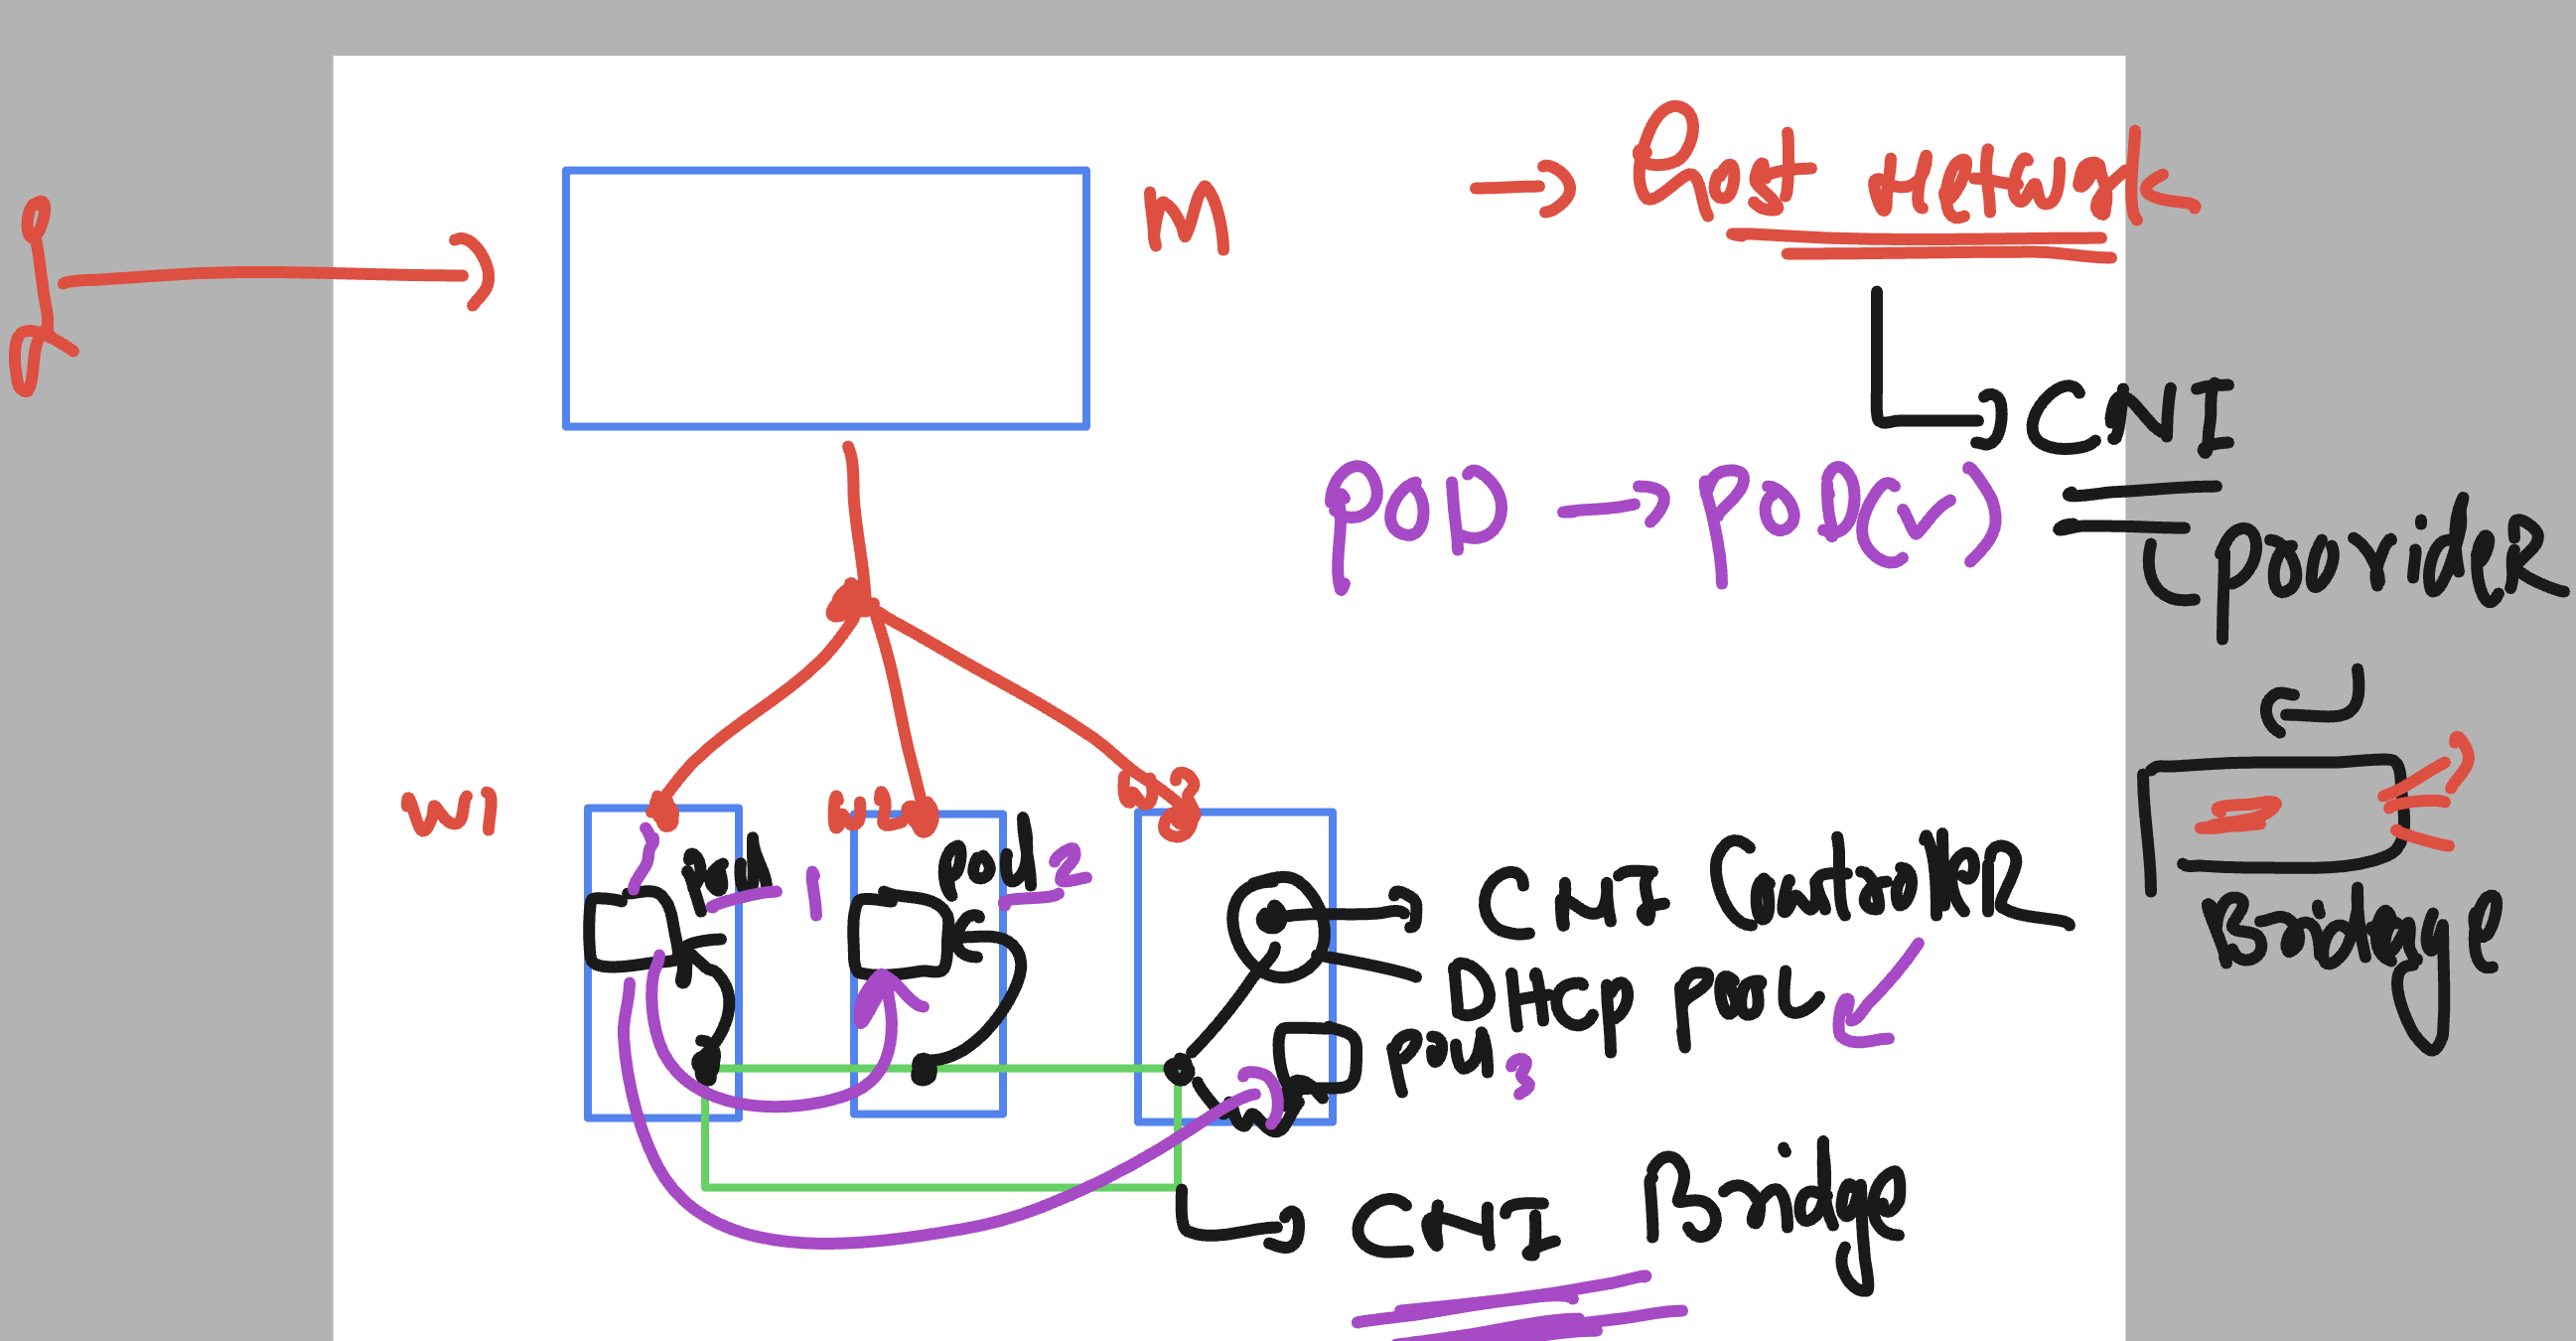 M
→ Post Network
CNI
POD → POD(✓)
ProvideR
W1
W2
W3
Pod 1
Pod 2
CNI ControlleR
DHCP Pool
Pod 3
Bridge
CNI Bridge